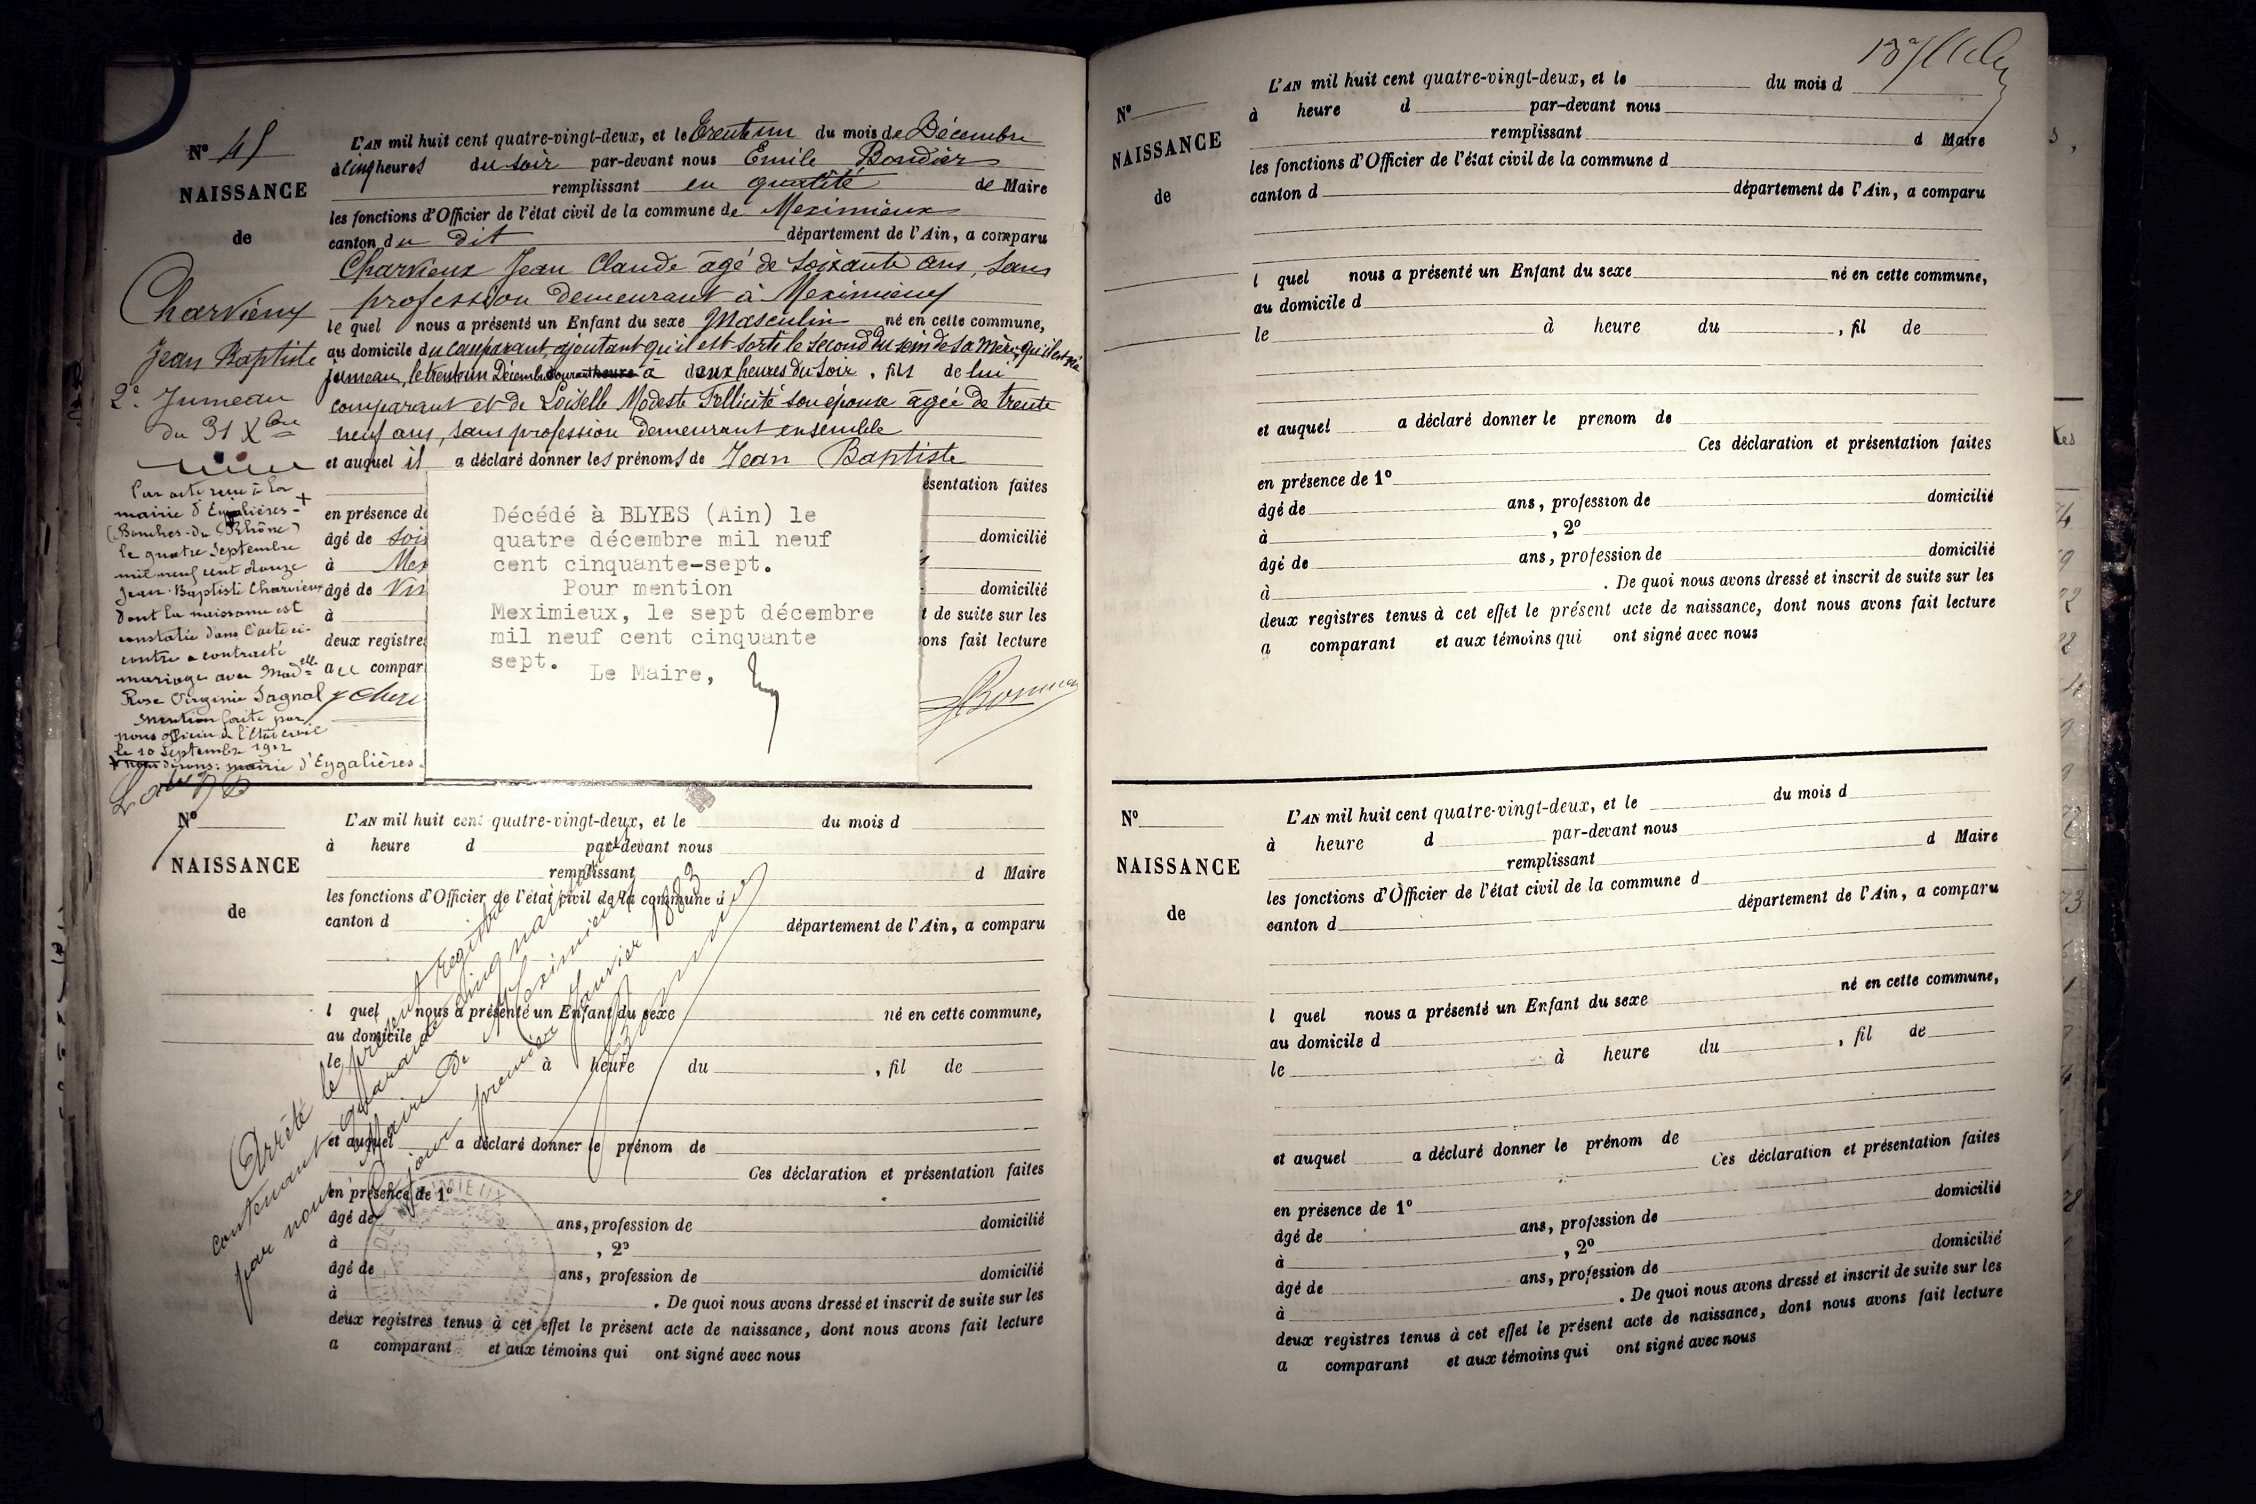 Nº 45
NAISSANCE
de
Charvieux
Jean Baptiste
2e Jumeau
du 31 Xbre
L'AN mil huit cent quatre-vingt-deux, et le Trente un du mois de Décembre
à Cinq heures du soir par-devant nous Emile
remplissant en qualité de Maire
les fonctions d'Officier de l'état civil de la commune de Meximieux
canton du dit département de l'Ain, a comparu
Charvieux Jean Claude âgé de soixante ans, sans
profession demeurant à Meximieux
le quel nous a présenté un Enfant du sexe Masculin né en cette commune,
au domicile du comparant, ajoutant qu'il est sorti le second du sein de sa mère, qu'il est né
jumeau, le trente un Décembre courant heure à deux heures du soir, fils de lui
comparant et de Loiselle Modeste Féllicité son épouse âgée de trente
neuf ans, sans profession demeurant ensemble
et auquel il a déclaré donner les prénoms de Jean Baptiste
ésentation faites
en présence de
âgé de soix
domicilié
à Mex
âgé de Vin
domicilié
à
t de suite sur les
deux registres
ons fait lecture
au compar
Par acte reçu à la
mairie d'Eygalières +
(Bouches-du-Rhône)
le quatre Septembre
mil neuf cent douze
Jean-Baptiste Charvieux
dont la naissance est
constatée dans l'acte ci-
contre a contracté
mariage avec Madelle
Rose Virginie Sagnal
Mention faite par
nous officier de l'état civil
le 10 Septembre 1912
+ nous disons: mairie d'Eygalières.
Décédé à BLYES (Ain) le
quatre décembre mil neuf
cent cinquante-sept.
Pour mention
Meximieux, le sept décembre
mil neuf cent cinquante
sept.
Le Maire,
Nº
NAISSANCE
de
L'AN mil huit cent quatre-vingt-deux, et le du mois d
à heure d par-devant nous
remplissant d Maire
les fonctions d'Officier de l'état civil de la commune d
canton d département de l'Ain, a comparu
l quel nous a présenté un Enfant du sexe né en cette commune,
au domicile d
le à heure du , fil de
et auquel a déclaré donner le prénom de
Ces déclaration et présentation faites
en présence de 1º
âgé de ans, profession de domicilié
à , 2º
âgé de ans, profession de domicilié
à . De quoi nous avons dressé et inscrit de suite sur les
deux registres tenus à cet effet le présent acte de naissance, dont nous avons fait lecture
a comparant et aux témoins qui ont signé avec nous
Arrêté le présent registre
contenant quarante cinq naissances
par nous Maire de Meximieux
Ce jour premier Janvier 1883
MEXIMIEUX
Nº
NAISSANCE
de
L'AN mil huit cent quatre-vingt-deux, et le du mois d
à heure d par-devant nous
remplissant d Maire
les fonctions d'Officier de l'état civil de la commune d
canton d département de l'Ain, a comparu
l quel nous a présenté un Enfant du sexe né en cette commune,
au domicile d
le à heure du , fil de
et auquel a déclaré donner le prenom de
Ces déclaration et présentation faites
en présence de 1º
âgé de ans, profession de domicilié
à , 2º
âgé de ans, profession de domicilié
à . De quoi nous avons dressé et inscrit de suite sur les
deux registres tenus à cet effet le présent acte de naissance, dont nous avons fait lecture
a comparant et aux témoins qui ont signé avec nous
Nº
NAISSANCE
de
L'AN mil huit cent quatre-vingt-deux, et le du mois d
à heure d par-devant nous
remplissant d Maire
les fonctions d'Officier de l'état civil de la commune d
canton d département de l'Ain, a comparu
l quel nous a présenté un Enfant du sexe né en cette commune,
au domicile d
le à heure du , fil de
et auquel a déclaré donner le prénom de
Ces déclaration et présentation faites
en présence de 1º
âgé de ans, profession de domicilié
à , 2º
âgé de ans, profession de domicilié
à . De quoi nous avons dressé et inscrit de suite sur les
deux registres tenus à cet effet le présent acte de naissance, dont nous avons fait lecture
a comparant et aux témoins qui ont signé avec nous